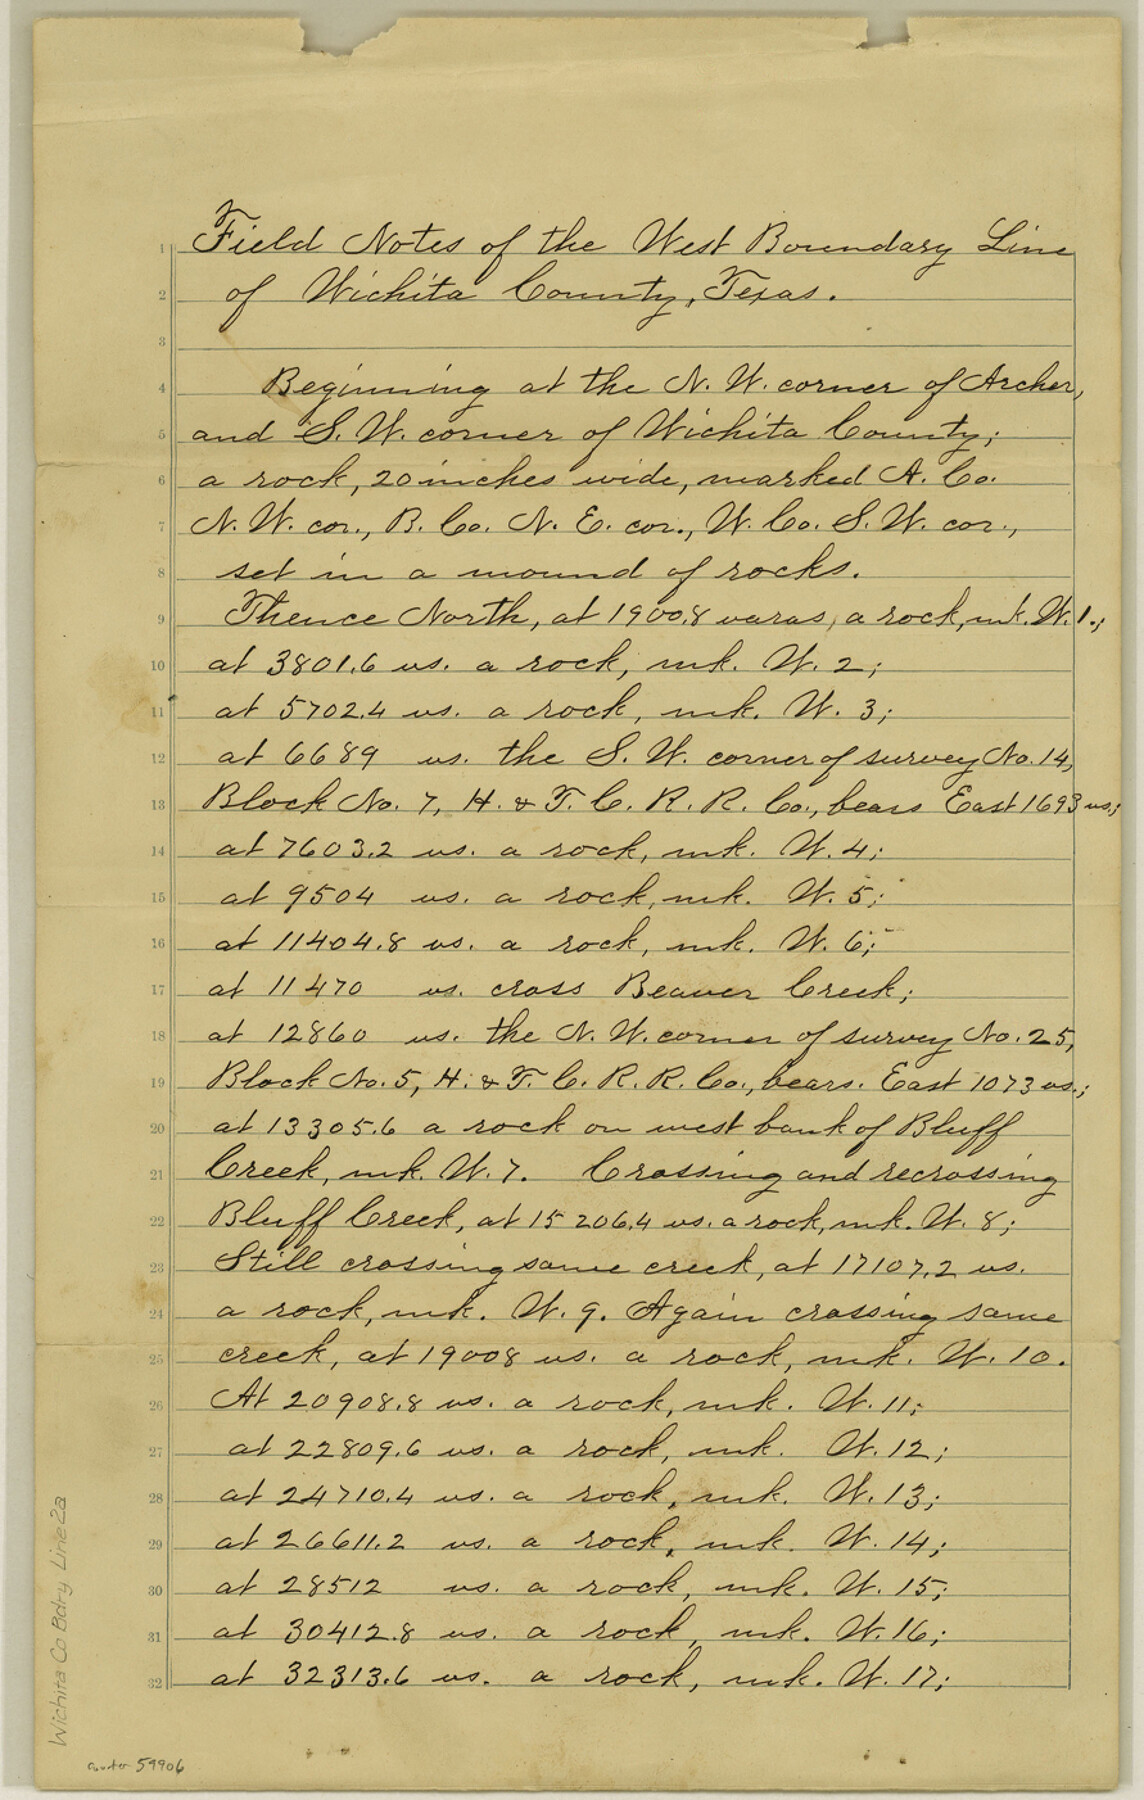 1 Field Notes of the West Boundary Line
2 of Wichita County, Texas.
3
4 Beginning at the N. W. corner of Archer,
5 and S. W. corner of Wichita County;
6 a rock, 20 inches wide, marked A. Co.
7 N. W. cor., B. Co. N. E. cor., W. Co. S. W. cor.,
8 set in a mound of rocks.
9 Thence North, at 1900.8 varas, a rock, mk. W. 1.;
10 at 3801.6 vs. a rock, mk. W. 2;
11 at 5702.4 vs. a rock, mk. W. 3;
12 at 6689 vs. the S. W. corner of survey No. 14,
13 Block No. 7, H. & T. C. R. R. Co., bears East 1693 vs.;
14 at 7603.2 vs. a rock, mk. W. 4;
15 at 9504 vs. a rock, mk. W. 5;
16 at 11404.8 vs. a rock, mk. W. 6;
17 at 11470 vs. cross Beaver Creek;
18 at 12860 vs. the N. W. corner of survey No. 25,
19 Block No. 5, H. & T. C. R. R. Co., bears. East 1073 vs.;
20 at 13305.6 a rock on west bank of Bluff
21 Creek, mk. W. 7. Crossing and recrossing
22 Bluff Creek, at 15206.4 vs. a rock, mk. W. 8;
23 Still crossing same creek, at 17107.2 vs.
24 a rock, mk. W. 9. Again crossing same
25 creek, at 19008 vs. a rock, mk. W. 10.
26 At 20908.8 vs. a rock, mk. W. 11;
27 at 22809.6 vs. a rock, mk. W. 12;
28 at 24710.4 vs. a rock, mk. W. 13;
29 at 26611.2 vs. a rock, mk. W. 14;
30 at 28512 vs. a rock, mk. W. 15;
31 at 30412.8 vs. a rock, mk. W. 16;
32 at 32313.6 vs. a rock, mk. W. 17;
Wichita Co Bdry Line 2a
counter 59906